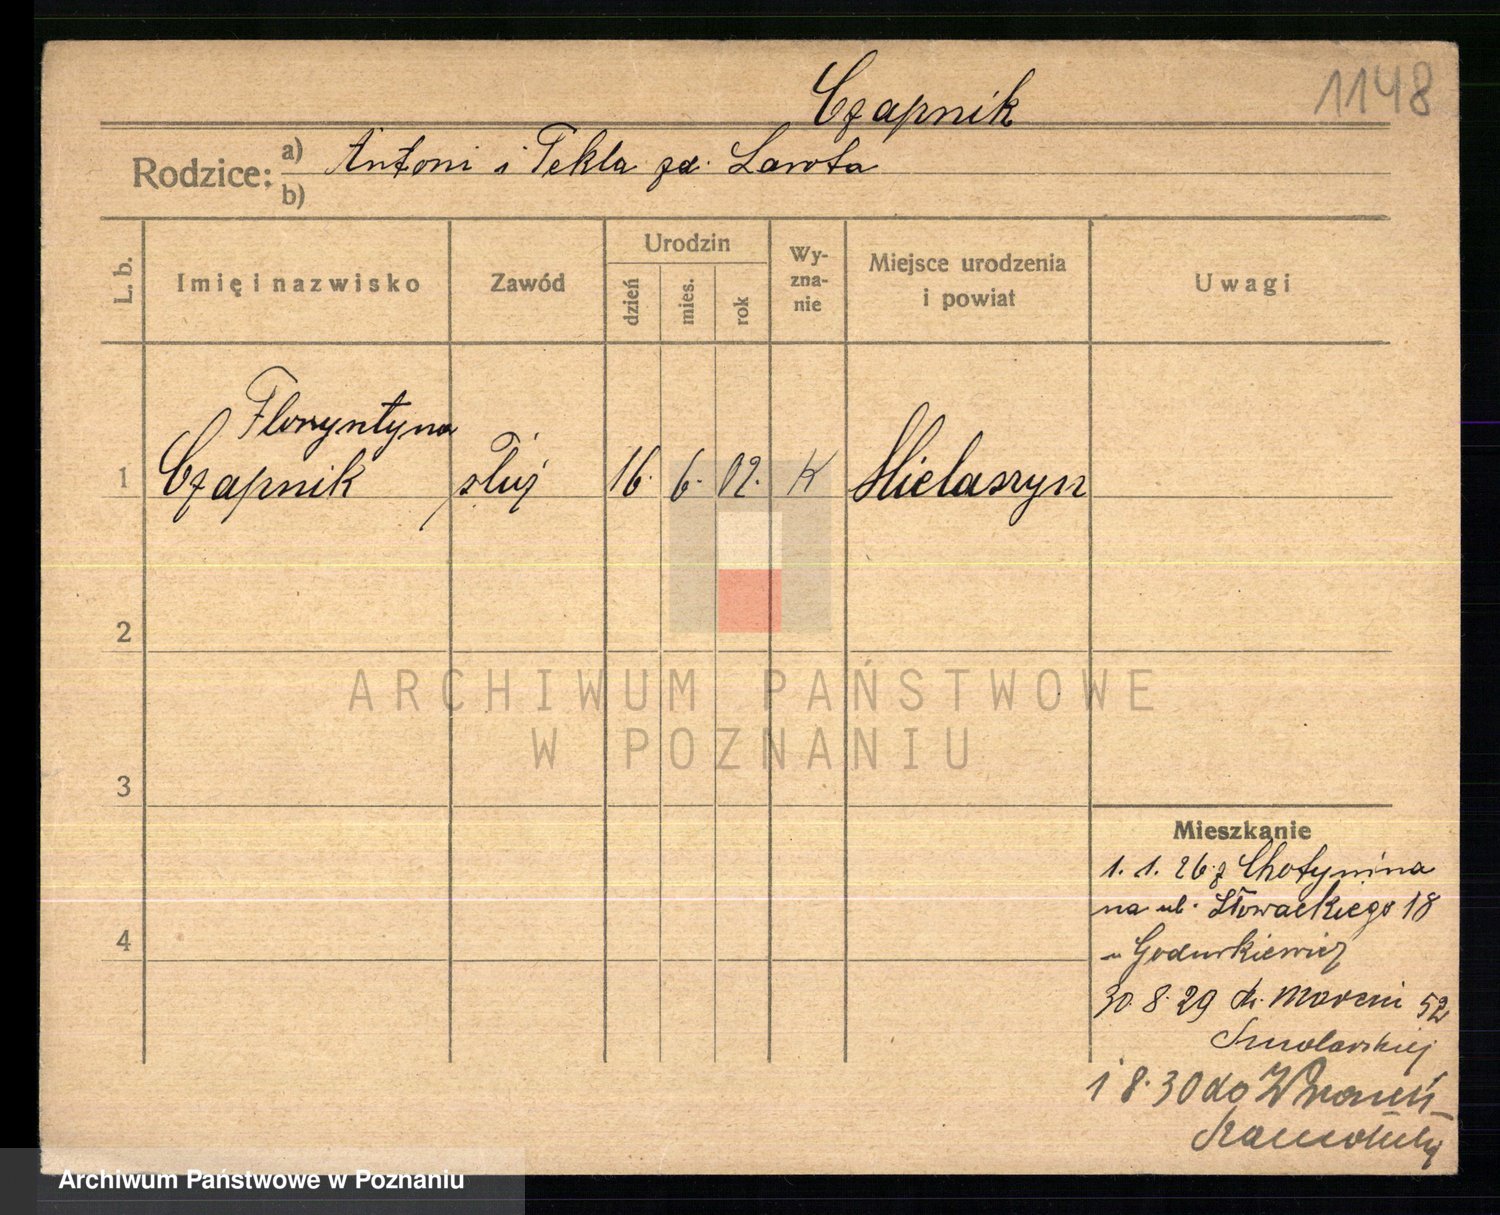 1148
Czapnik
Rodzice: a) Antoni i Tekla zd. Lawota
b)
L. b.
Imię i nazwisko
Zawód
Urodzin
dzień
mies.
rok
Wy-
zna-
nie
Miejsce urodzenia
i powiat
Uwagi
Floryntyna
1 Czapnik służ 16. 6. 02. K Mielaszyn
2
ARCHIWUM PAŃSTWOWE
W POZNANIU
3
Mieszkanie
1. 1. 26 z Chotynina
na ul. Słowackiego 18
4
u Godurkiewicz
30. 8. 29 Marcin 52
Smolarskiej
1 8. 30 do Wronek
Szamotuły
Archiwum Państwowe w Poznaniu